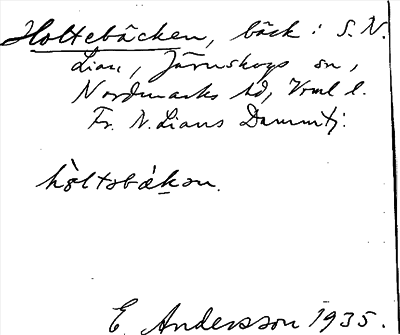 Holtebäcken, bäck i S. N.
Lian, Järnskogs sn,
Nordmarks hd, Vrml l.
Fr. N. Lians Dammtj.
hòltəbækən.
E. Andersson 1935.